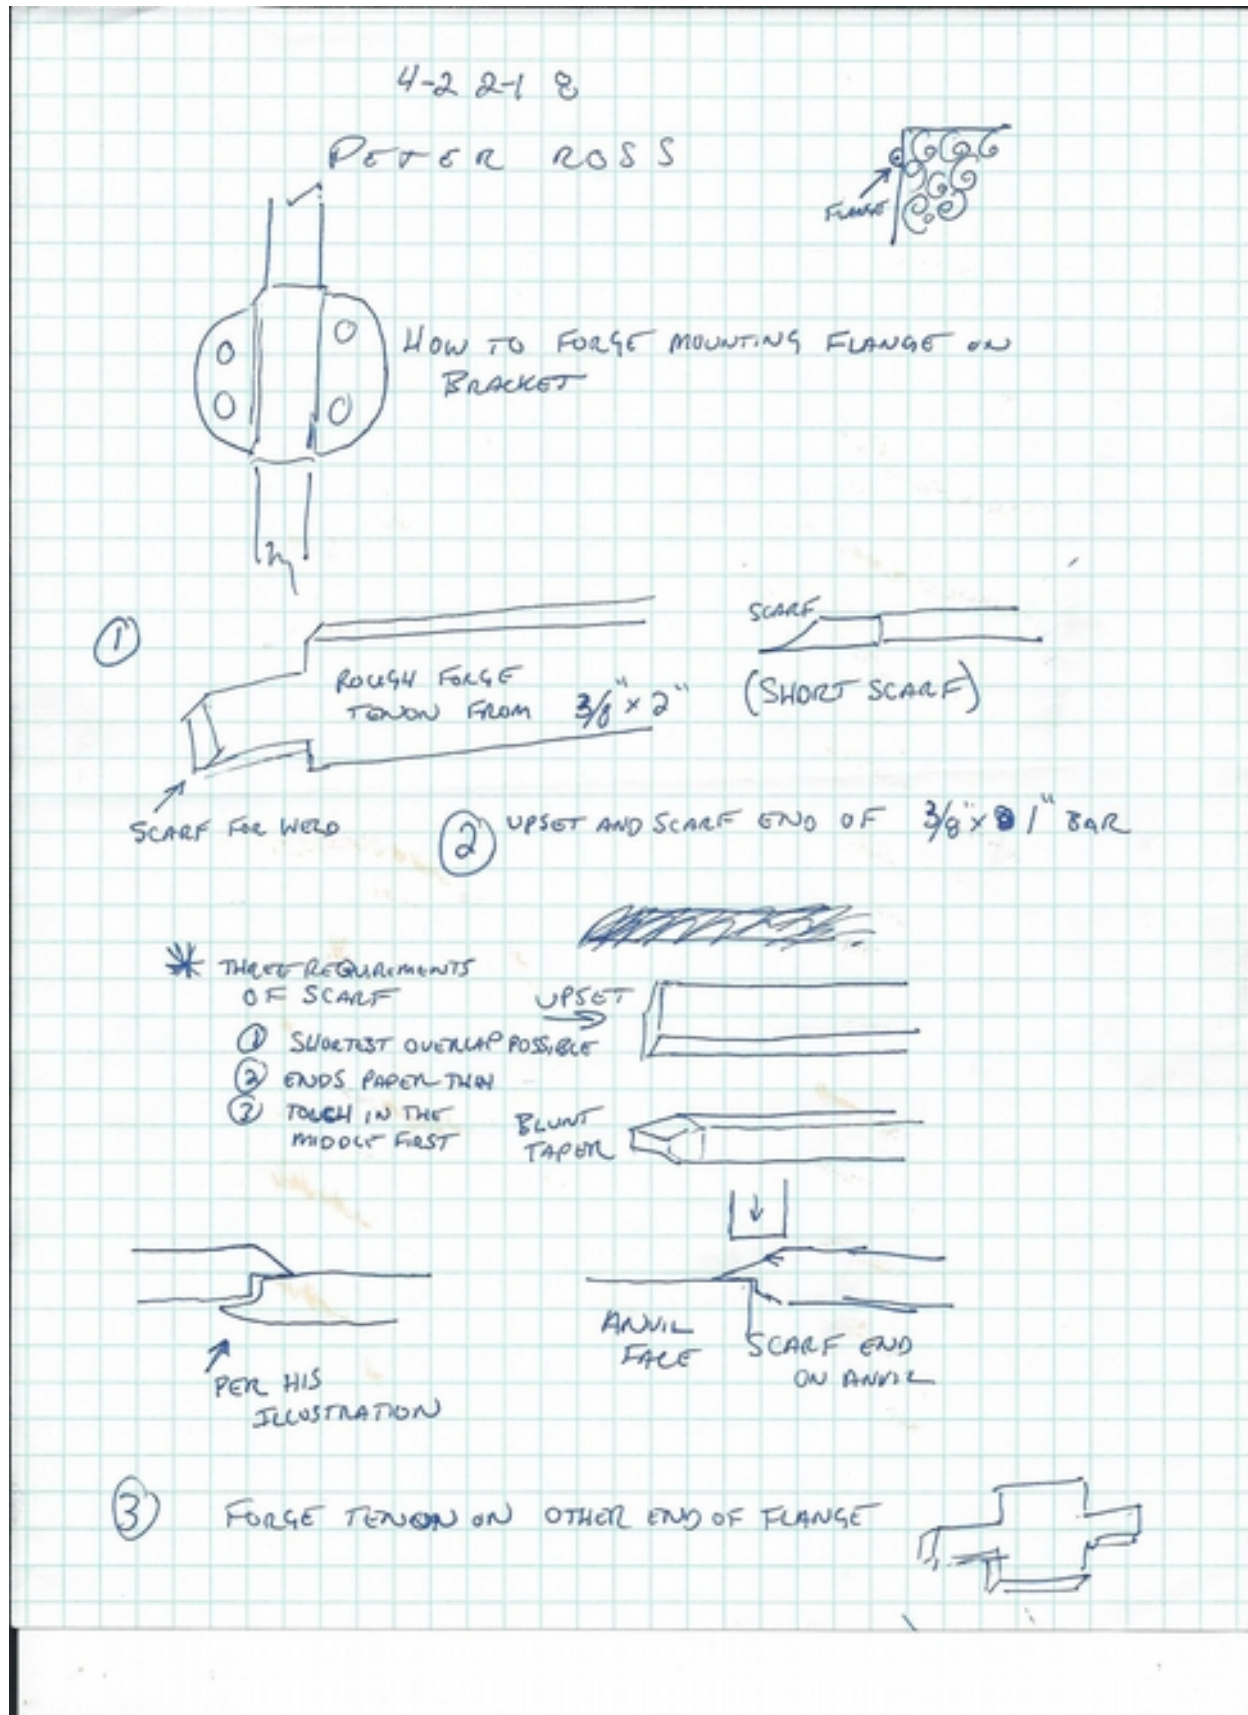 4-22-18
PETER ROSS
FLANGE
HOW TO FORGE MOUNTING FLANGE ON
BRACKET
①
ROUGH FORGE
TENON FROM 3/8" x 2"
SCARF
(SHORT SCARF)
SCARF FOR WELD
② UPSET AND SCARF END OF 3/8" x 1" BAR
* THREE REQUIREMENTS
OF SCARF
① SHORTEST OVERLAP POSSIBLE
② ENDS PAPER THIN
③ TOUCH IN THE
MIDDLE FIRST
UPSET
BLUNT
TAPER
PER HIS
ILLUSTRATION
ANVIL
FACE
SCARF END
ON ANVIL
③ FORGE TENON ON OTHER END OF FLANGE